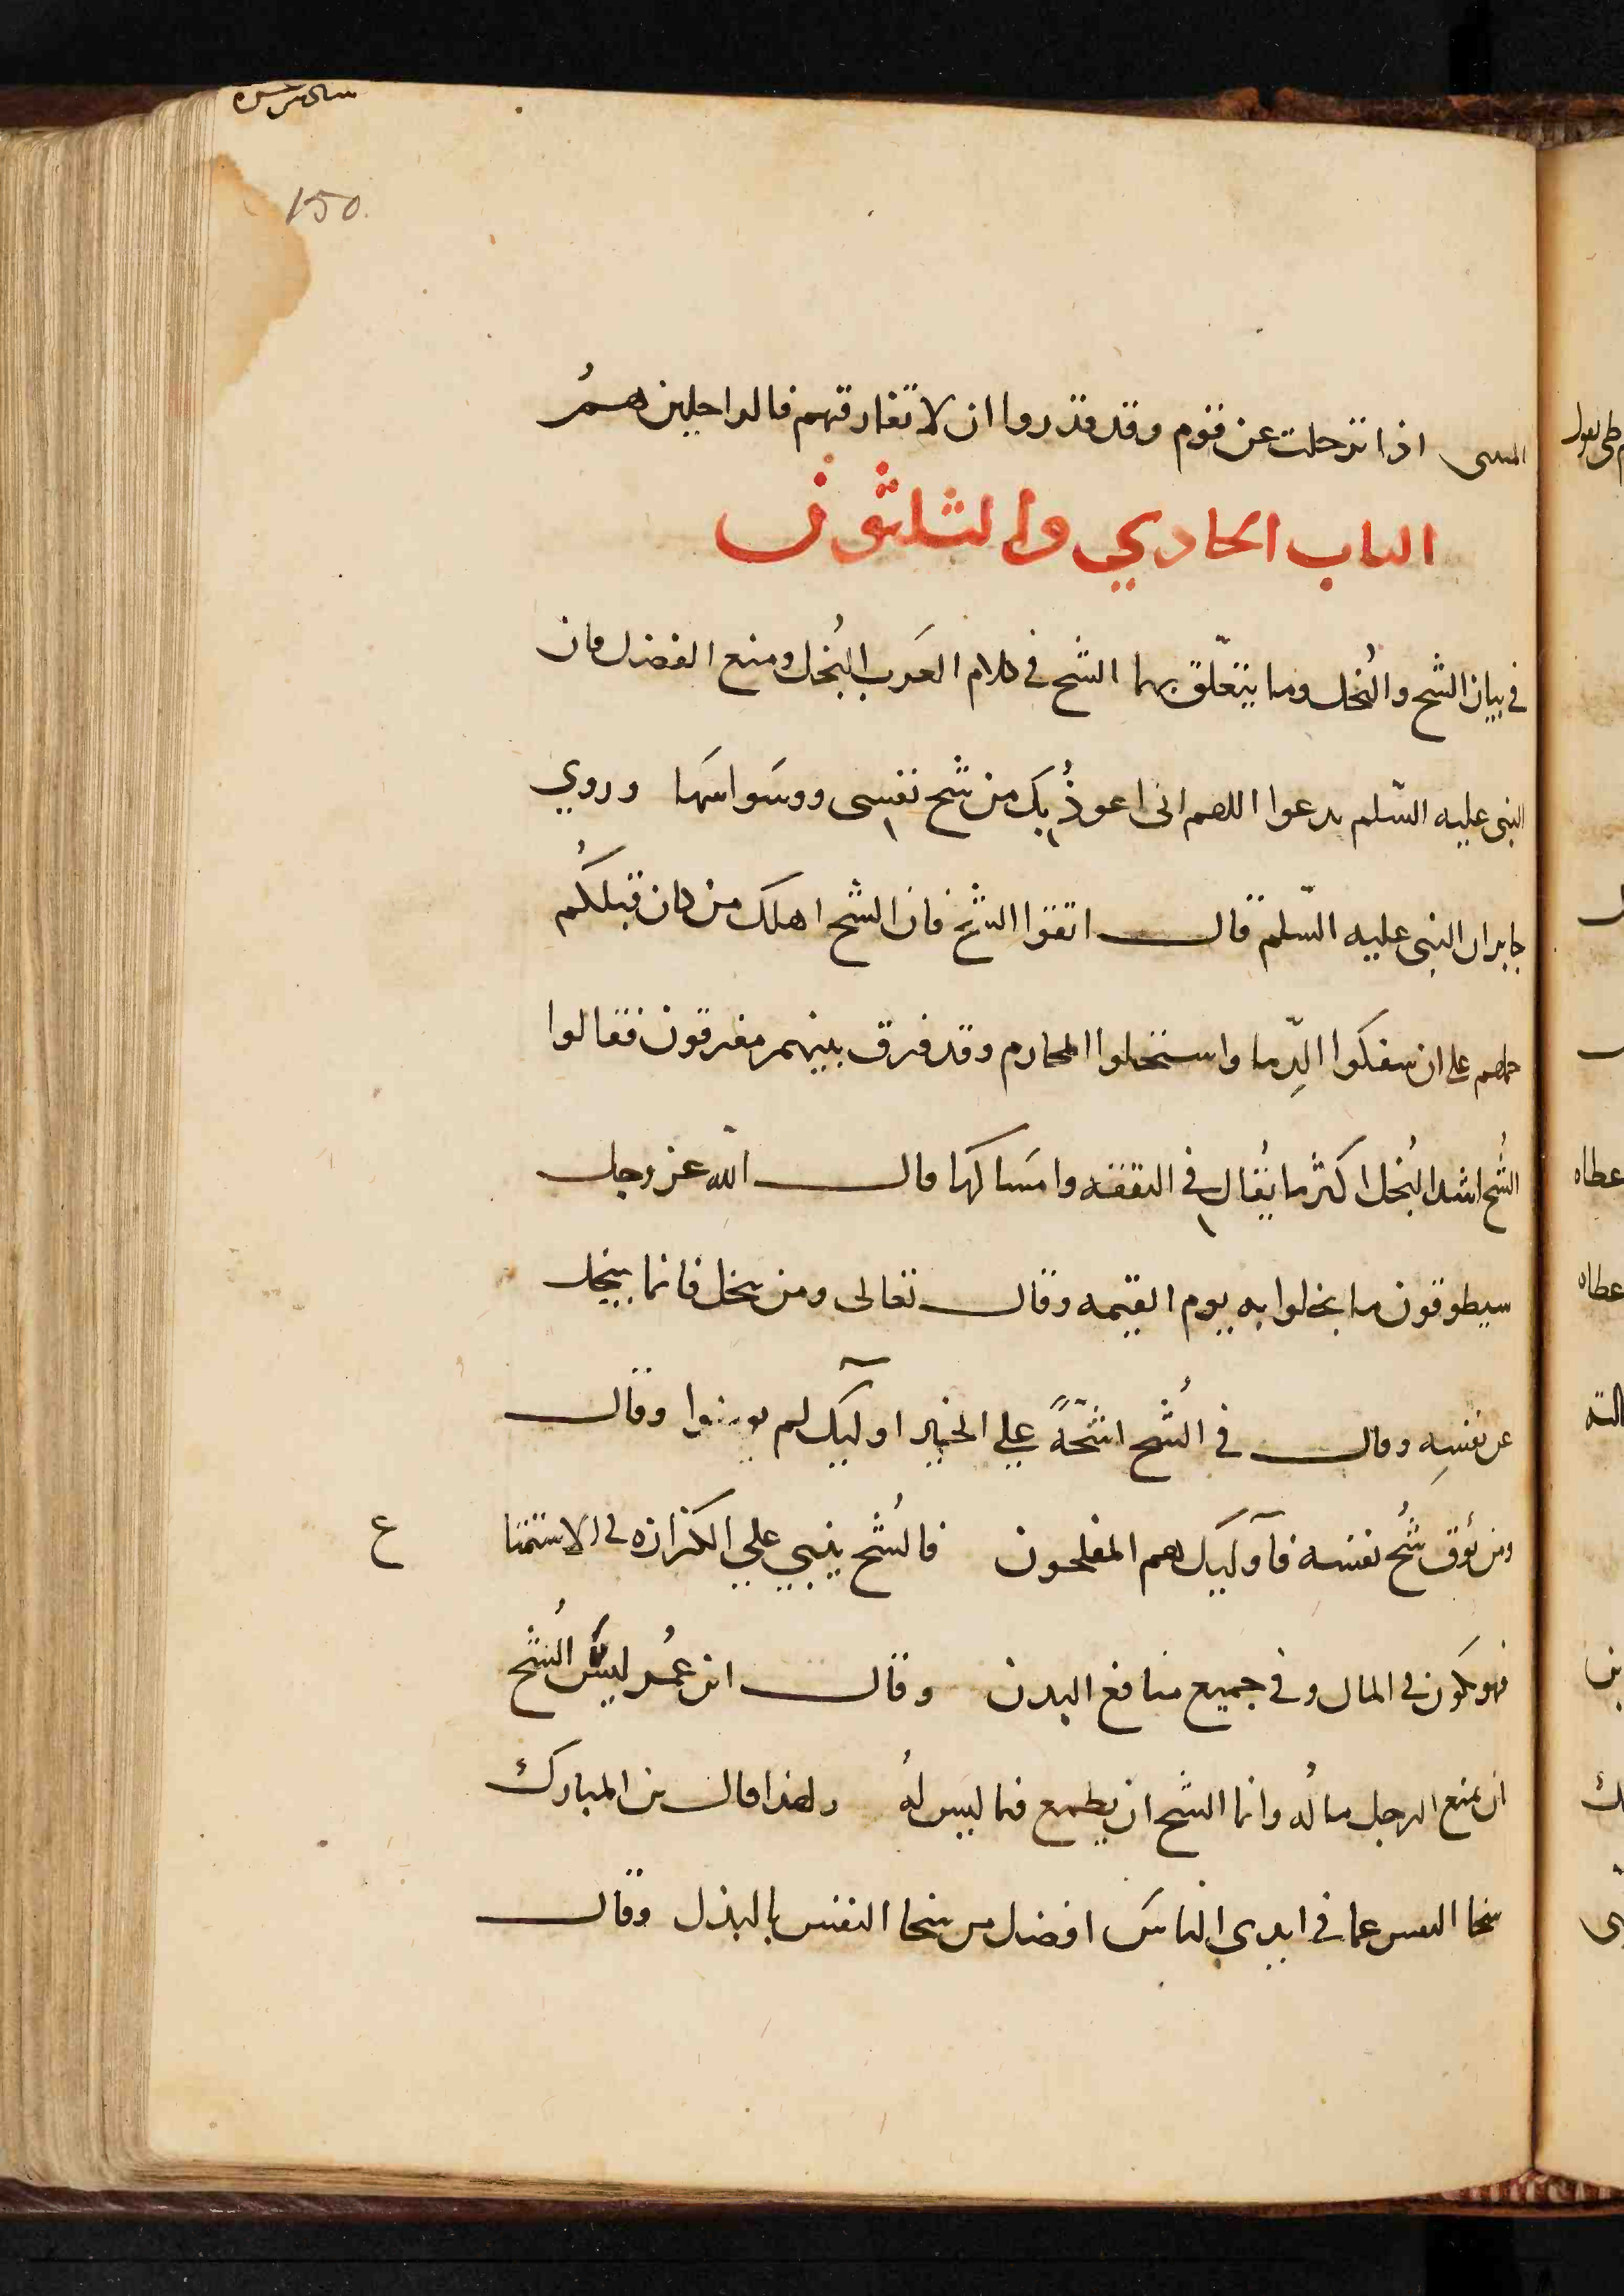 150
اذا ترحلت عن قوم وقد قدروا ان لا تفارقهم فالراحلين همُ
الباب الحادي والثلثون
في بيان الشح والبُخل وما يتعلّق بهما الشح في كلام العَرب البُخل ومنع الفضل وان
النبى عليه السّلم يدعوا اللهم انى اعوذُ بك من شح نفسى ووسَواسهَا وروي
جابر ان النبى عليه السّلم قال اتقوا الشح فان الشح اهلك من كان قبلكُم
حملهم على ان سفكوا الدِّما واستحلوا المحارم وقد فرق بينهم مفرقون فقالوا
الشُح اشد البُخل اكثر ما يُقال في النفقه وامسَاكها قال الله عز وجل
سيطوقون ما بخلوا به يوم القيمه وقال تعالى ومن يبخل فانما يبخل
عن نفسِه وقال في الشُح اشحّةً علي الخير اوليك لم يومنوا وقال
ومن يُوق شُح نفسه فآوليك هم المفلحون فالشُح يبنيي علي الكزازه في الاستمنا
ع
فهو يكون في المال وفي جميع منافع البدن وقال ابن عمُر ليسَ الشُح
ان يمنع الرجل مالُه وانما الشح ان يطمع فيما ليس لهُ ولهذا قال بن المبارك
سخا النفس عما في ايدي الناسَ افضل من سخا النفس بالبذل وقال